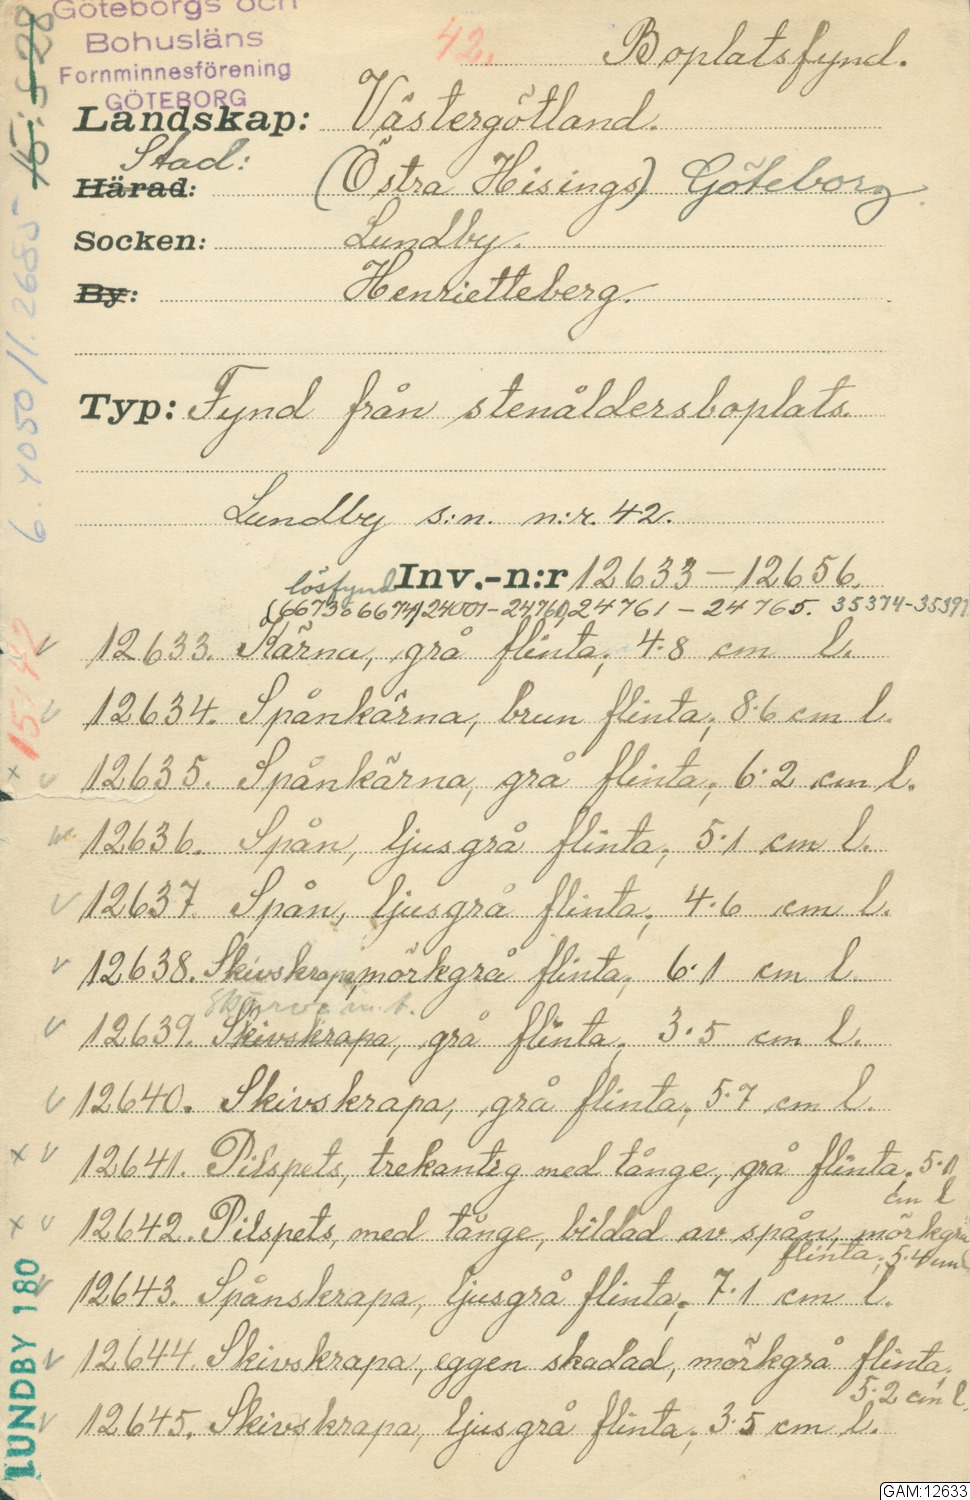 Göteborgs och
Bohusläns
Fornminnesförening
GÖTEBORG
42.
Boplatsfynd.
Landskap: Västergötland.
Stad:
Härad: (Östra Hisings) Göteborg.
Socken: Lundby.
By: Henrietteberg.
Typ: Fynd från stenåldersboplats.
Lundby s:n. n:r. 42.
lösfynd Inv.-n:r 12633–12656.
24761–24765. 35374-35397
12633. Kärna, grå flinta, 4·8 cm l.
12634. Spånkärna, brun flinta, 8·6 cm l.
12635. Spånkärna, grå flinta, 6·2 cm l.
12636. Spån, ljusgrå flinta, 5·1 cm l.
12637. Spån, ljusgrå flinta, 4·6 cm l.
12638. Skivskrapa, mörkgrå flinta, 6·1 cm l.
12639. Skivskrapa, grå flinta, 3·5 cm l.
12640. Skivskrapa, grå flinta, 5·7 cm l.
12641. Pilspets, trekantig med tånge, grå flinta, 5·1
cm l
12642. Pilspets, med tånge, bildad av spån, mörkgrå
flinta, 5·4 cm l
12643. Spånskrapa, ljusgrå flinta, 7·1 cm l.
12644. Skivskrapa, eggen skadad, mörkgrå flinta,
5·2 cm l.
12645. Skivskrapa, ljusgrå flinta, 3·5 cm l.
LUNDBY 180
15:42
15:5-28
GAM:12633